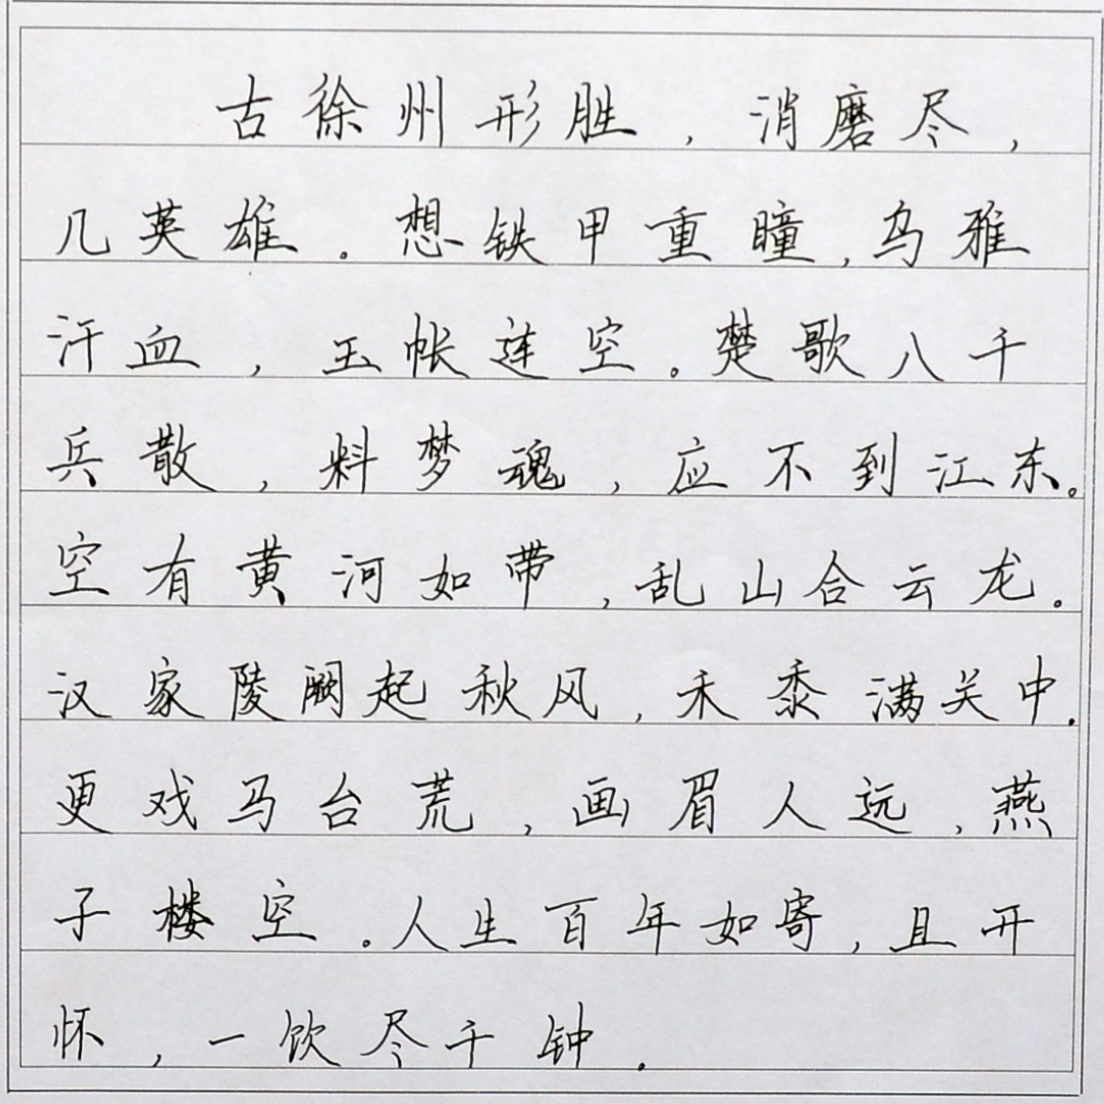 古徐州形胜，消磨尽，
几英雄。想铁甲重瞳，乌雅
汗血，玉帐连空。楚歌八千
兵散，料梦魂，应不到江东。
空有黄河如带，乱山合云龙。
汉家陵阙起秋风，禾黍满关中。
更戏马台荒，画眉人远，燕
子楼空。人生百年如寄，且开
怀，一饮尽千钟。